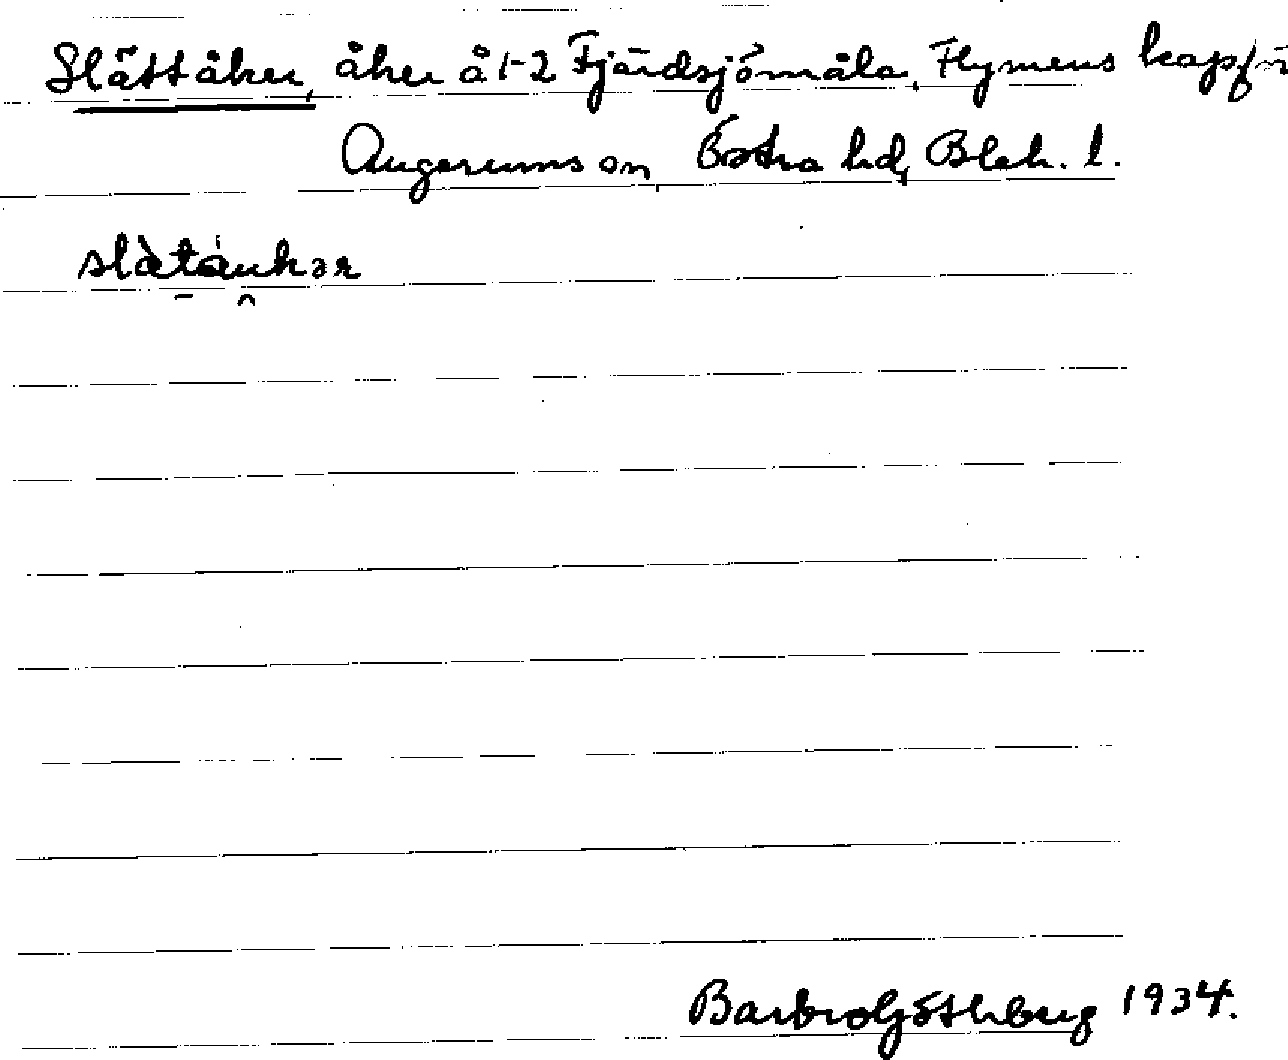 Slättåker, åker å 1-2 Fjärdsjömåla, Flymens kapför
Augerums sn, Östra hd, Blek. l.
slàtåukər
Barbro Göthberg 1934.